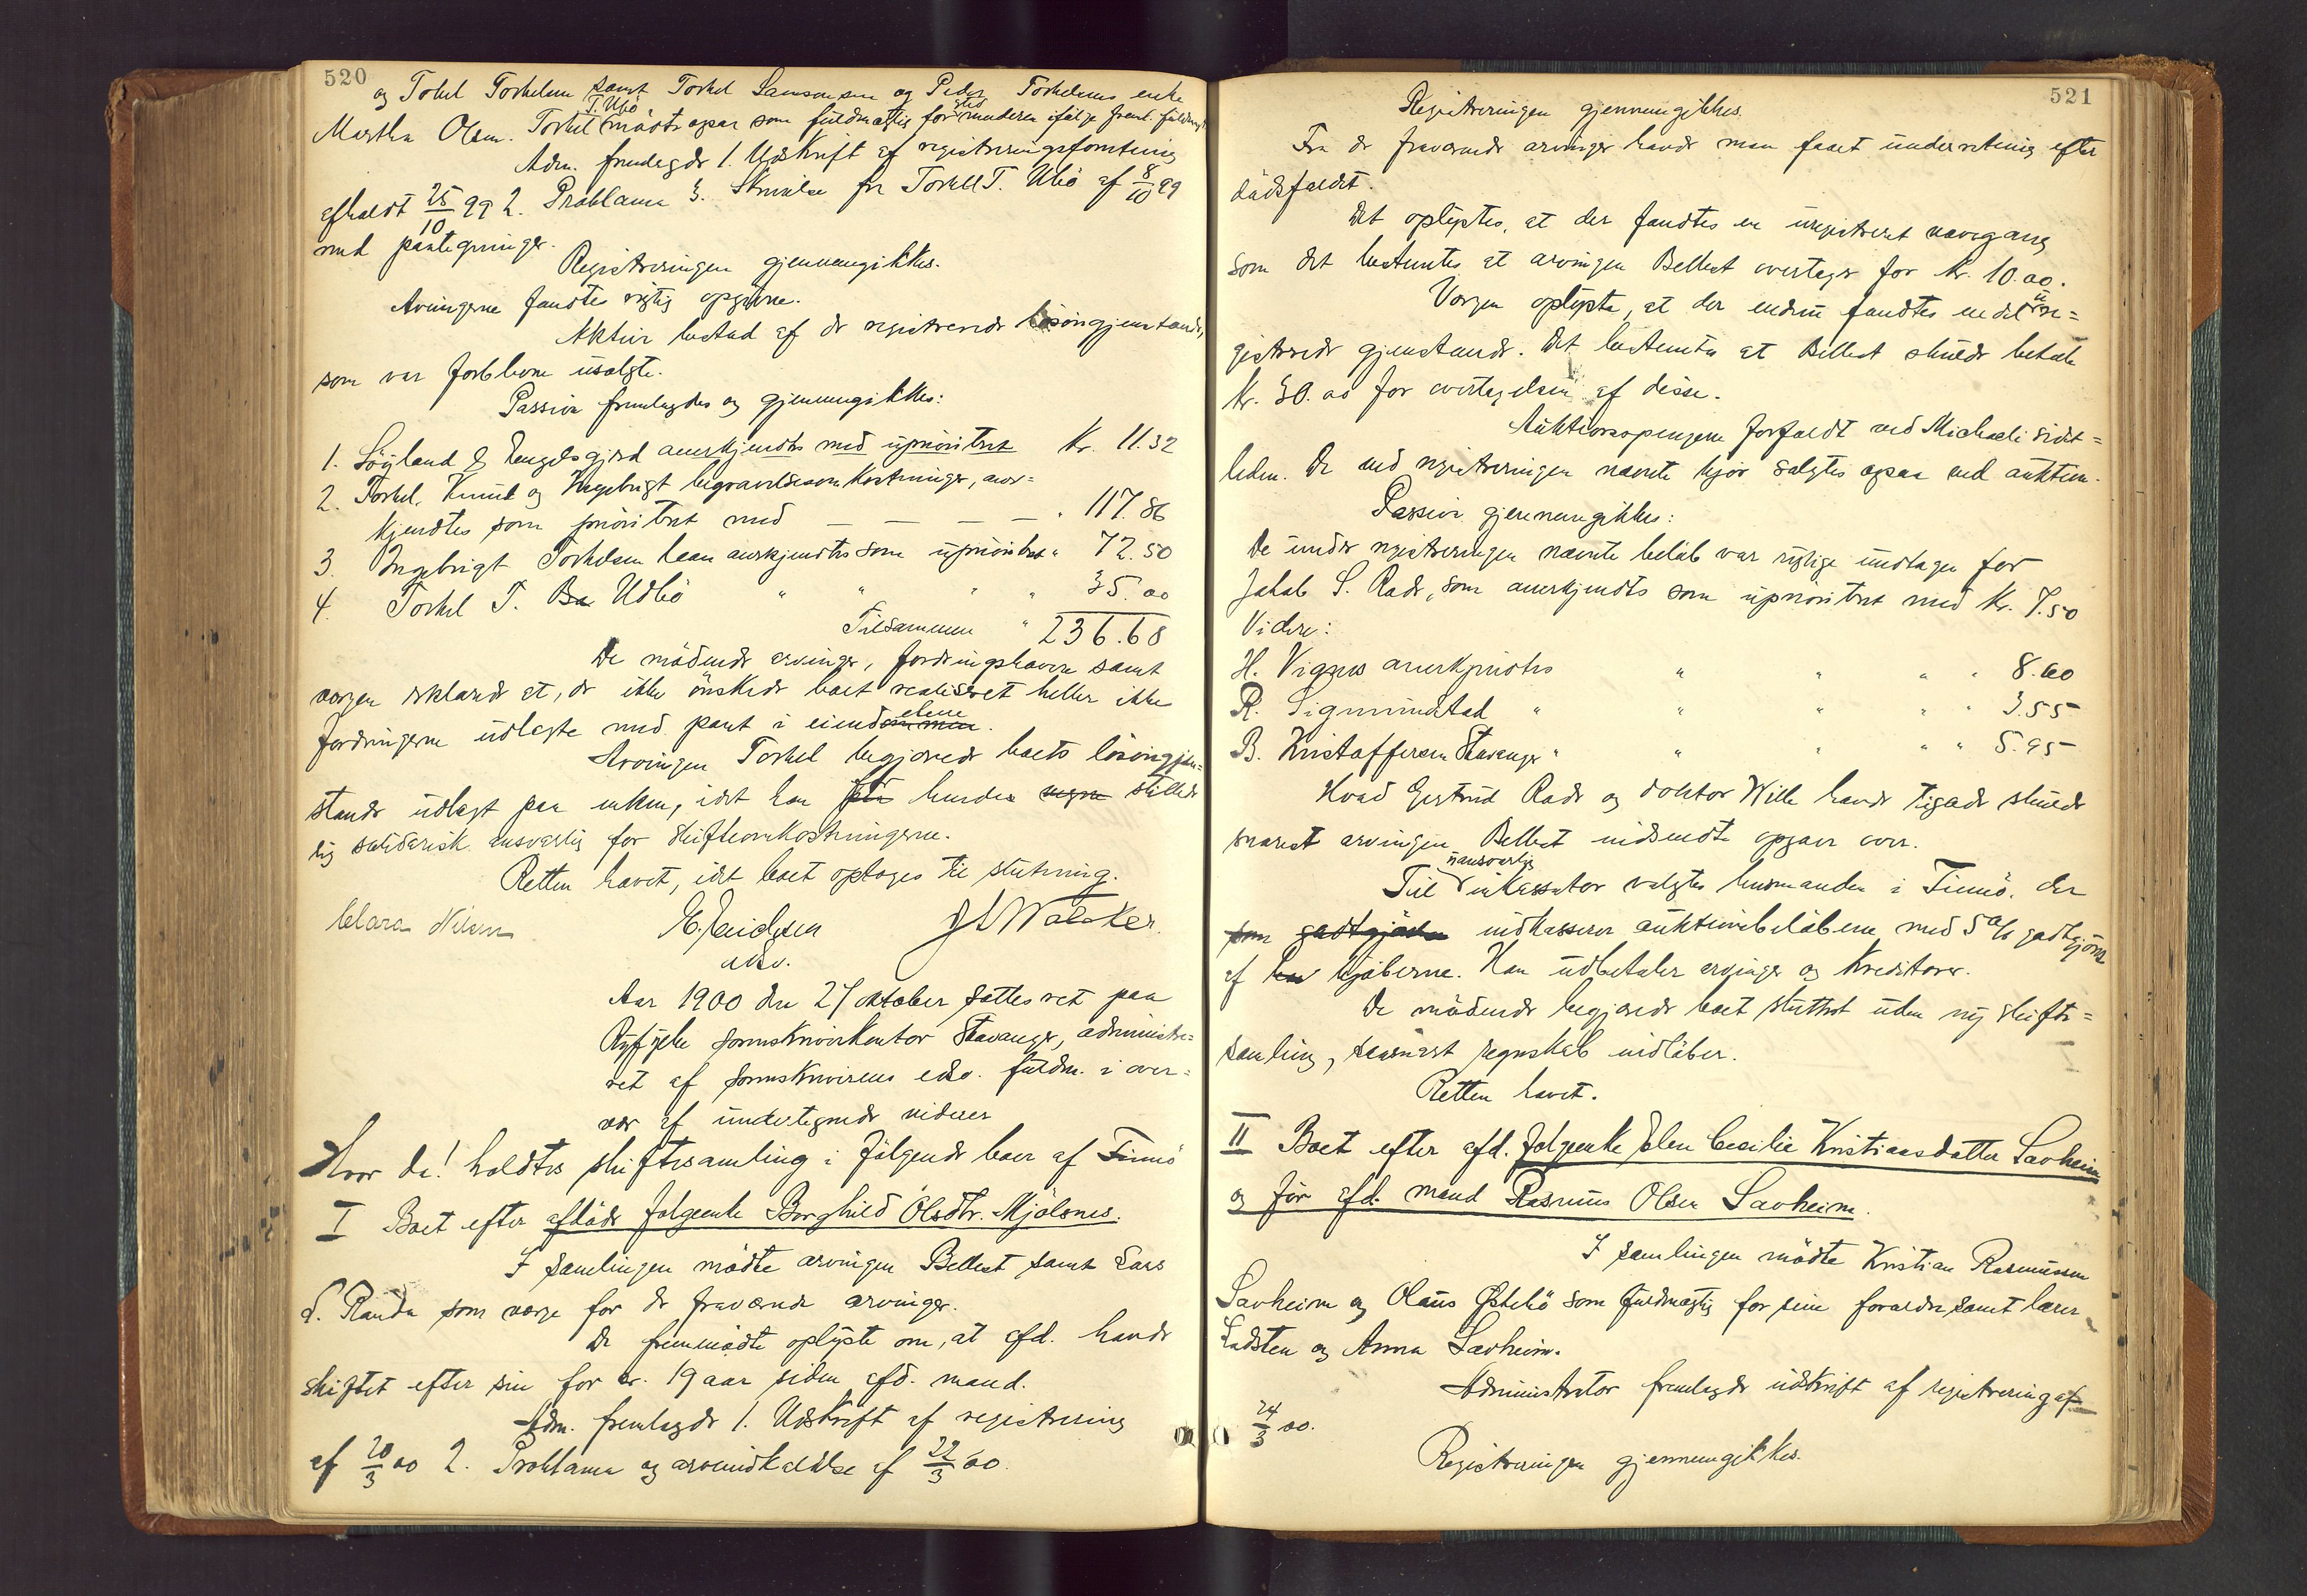 520
og Tohel Torkelsen samt Torkel Samsonsen og Peder Torkelsens enke
T. Ubö sted
Martha Olsen. Torkel mödte ogsaa som fuldmægtig for moderen ifölge freml. fuldmagt
Adm. fremlagde 1. Udskrift af registreringsforretning
afholdt 25/10 99 2. Proklama 3. Skrivelse fra Torkell T. Ubö af 8/10 99
med paategninger.
Registreringen gjennemgikkes.
Arvingerne fandtes rigtig opgivne.
Aktiva bestod af de registrerede lösöregjenstande,
som var forblevne usolgte.
Passiva fremlagdes og gjennemgikkes:
1. Söyland & Hengelsgjerd anerkjendtes med uprioritert Kr. 11.32
2. Torkel, Knut og Ingebrigt begravelsesomkostninger, aner=
kjendtes som prioritert med — — — — " 117.86
3. Ingebrigt Torkelsen laan anerkjendtes som uprioritert " 72.50
4. Torkel T. Ba Udbö " " " " 35.00
Tilsammen " 236.68
De mödende arvinger, fordringshavere samt
vergen erklærede at, de ikke önskede boet realiseret heller ikke
elene
fordringerne udlagte med pant i eiendommen.
Arvingen Torkel begjærede boets lösöregjen=
stande udlagt paa enken, idet han hendes stillede
sig solidarisk ansvarlig for skifteomkostningerne.
Retten hævet, idet boet optoges til slutning.
Clara Nilsen E. Davidsen J L Walcker
edsv.
Aar 1900 den 27 oktober sattes ret paa
Ryfylke sorenskriverkontor Stavanger, administre=
ret af sorenskriverens edsv. fuldm. i over=
vær af undertegnede vidner
Hvor da! holdtes skiftesamling i fölgende boer af Finnö
I Boet efter afdöde folgeenke Borghild Olsdtr. Mjölsnes.
I samlingen mödte arvingen Bellest samt Lars
L. Rauda som verge for de fraværende arvinger.
De fremmödte oplyste om, at afd. havde
skiftet efter sin for ca. 19 aar siden afd. mand.
Adm. fremlagde 1. Udskrift af registrering
af 20/3 00 2. Proklama og arveindkaldelse af 22/3 00.
521
Registreringen gjennemgikkes.
Fra de fraværende arvinger havde man faaet underretning efter
dödsfaldet.
Det oplystes, at der fandtes en uregistreret navergang
som det bestemtes at arvingen Bellest overtager for Kr. 10.00.
Vergen oplyste, at der endnu fandtes endel ure=
gistrerede gjenstande. Det bestemtes at Bellest skulde betale
Kr. 30.00 for overtagelsen af disse.
Auktionspengene forfaldt ved Michaeli sidst=
leden. De ved registreringen nævnte kjör solgtes ogsaa ved auktion.
Passiva gjennemgikkes:
De under registreringen nævnte belöb var rigtige undtagen for
Jakob S. Rade, som anerkjendtes som uprioritert med Kr. 7.50
Videre:
H. Vignes anerkjendtes " " " " 8.60
R. Sigmundstad " " " " " 3.55
B. Kristoffersen Stavanger " " " " " 5.95
Hvad Gjertrud Rade og doktor Wille havde tilgode skulde
snarest arvingen Bellest indsendte opgave over.
uansvarlig
Til inkassator valgtes lensmanden i Finnö. der
som godtgjörelse indkasserer auktionsbelöbene med 5 % godtgjörelse
af kjöberne. Han udbetaler arvinger og kreditorer.
De mödende begjærede boet sluttet uden ny skifte=
samling, saasnart regnskab indlöber.
Retten hævet.
II Boet efter afd. folgeenke Elen Cecilie Kristiansdatter Lavheim
og för afd. mand Rasmus Olsen Lavheim.
I samlingen mödte Kristian Rasmussen
Lavheim og Olaus Østebö som fuldmægtig for sine forældre samt lærer
Ladsten og Anna Lavheim.
Administrator fremlagde udskrift af registrering af
24/3 00.
Registreringen gjennemgikkes.